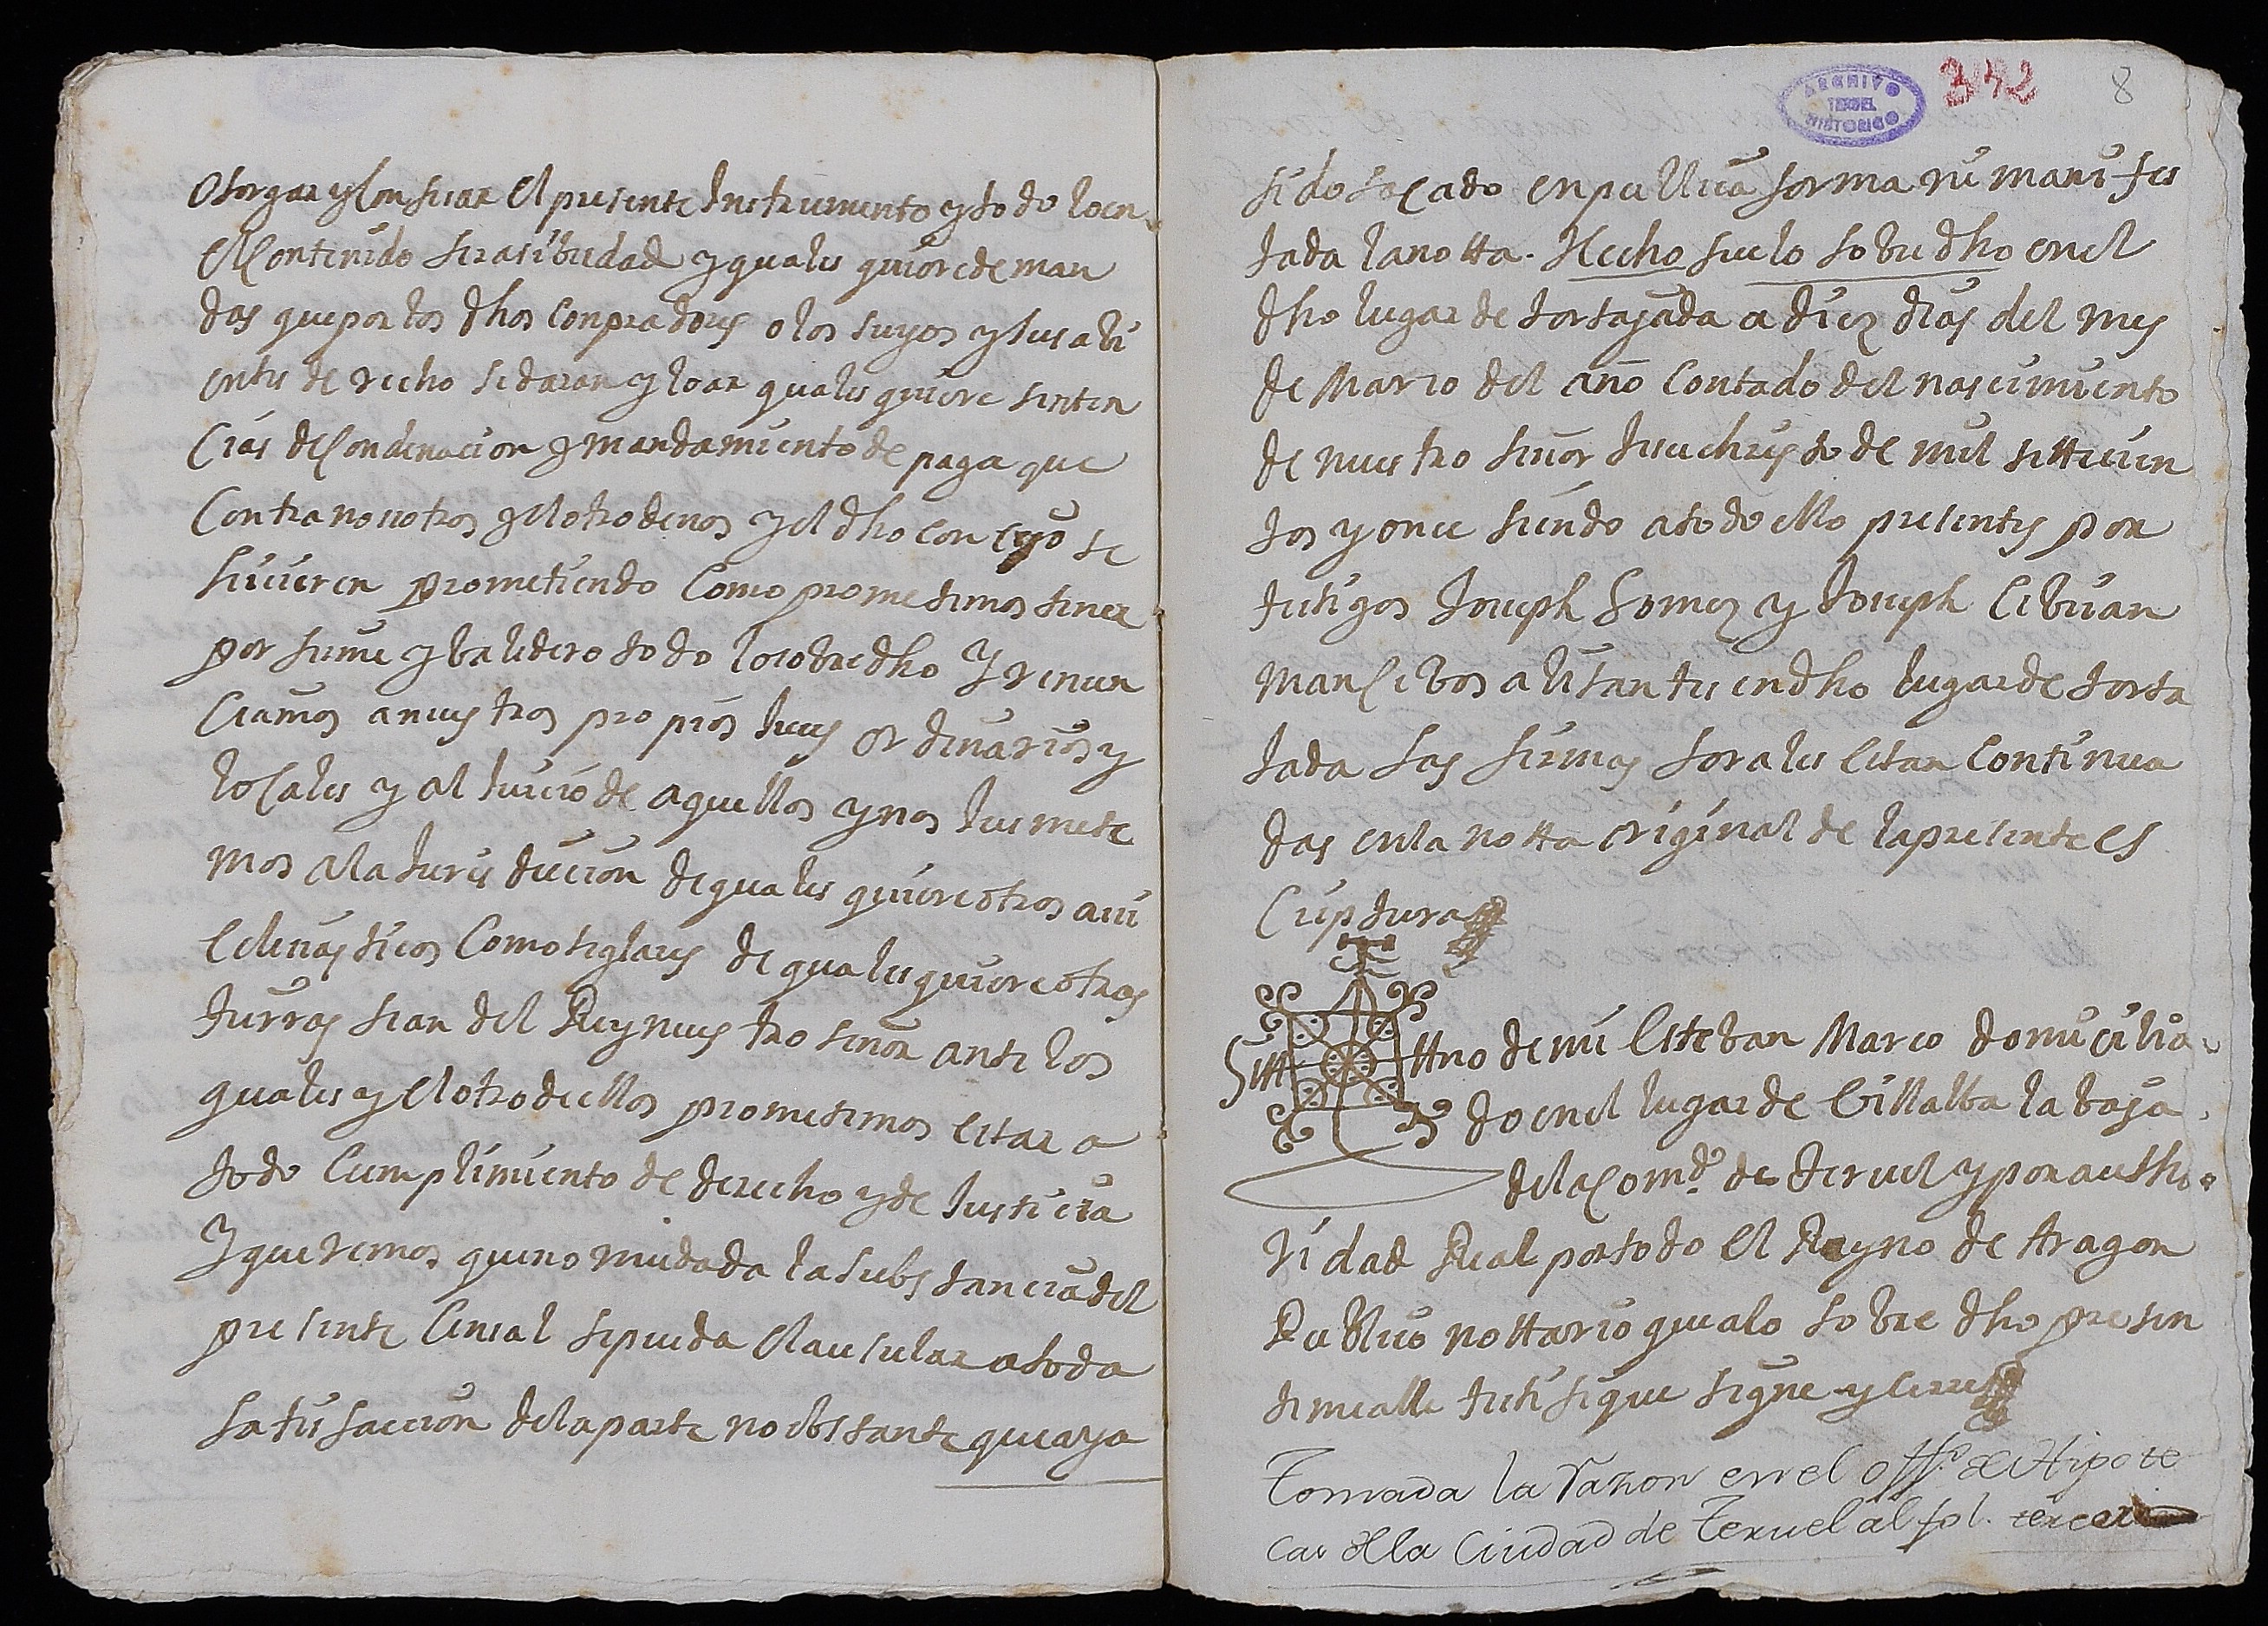 Otorgar y Confesar el presente Instrumento y todo lo en
el Contenido sera recibidad y quales quiore deman
das que por los dhos Conpradores o los suyos y sus abi
entes derecho se daran y loar quales quiere senten
Cias de Condenacion y mandamiento de paga que
Contra nosotros y el otro de nos y el dho conçejo se
hicieren prometiendo Como prometemos tener
por firme y balidero todo lo sobre dho Y renun
Ciamos a nuestros propios Jueces ordinarios y
loCales y al Juicio de aquellos y nos Jusmete
mos a la Juris dicion de quales quiere otros aci
Eclesiasticos Como seglares de quales quiere otras
tierras sean del Rey nuestro señor ante los
quales y el otro de ellos prometemos estar a
todo Cumplimiento de derecho y de Justicia
Y queremos que no mudada la substancia del
presente Censal se pueda Clausular a toda
satisfaccion de la parte no obstante que aya
ARCHIVO
TERUEL
HISTORICO
242
8
sido saCado en publica forma ni manifes
tada la notta. Hecho fue lo sobre dho en el
dho lugar de tortajada a diez dias del mes
de Março del año Contado del nascimiento
de nuestro señor Jesuchristo de mil settecien
tos y once siendo a todo ello presentes por
testigos Joseph Gomez y Joseph Cebrian
manCebos abitantes en dho lugar de torta
Jada las firmas forales estan Continua
das en la notta original de la presente es
Criptura
Sitt ttno de mi Esteban Marco domicilia
do en el lugar de Villalba la baja
de la Comd. de teruel y por autho
ridad Real por todo el Reyno de Aragon
Publico nottario que a lo sobre dho presen
te me alle testifique signe y cerre
Tomada la razon en el offo. de Hipote
cas de la Ciudad de Teruel al fol. tercero